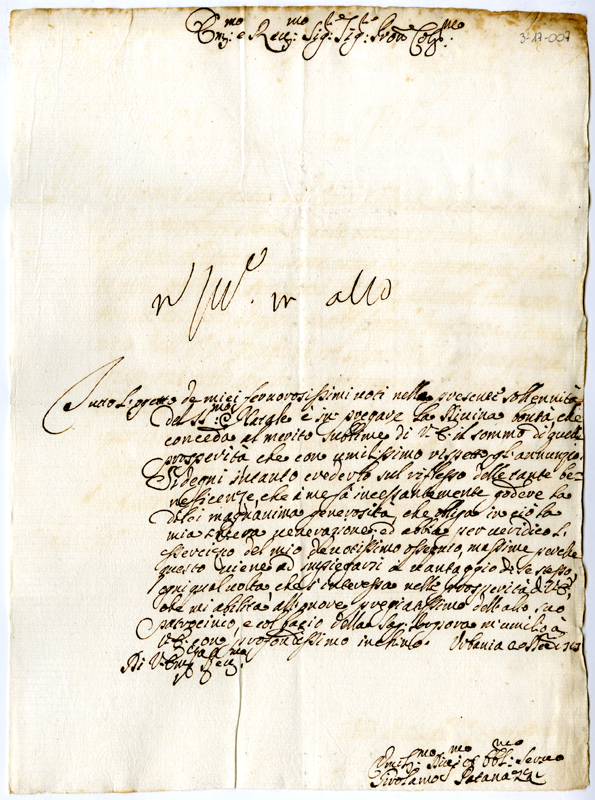 Em.mo e Rev.mo Sig.re Sig.re Pron Col.mo
3-17-007
in alto
Tutto l'oggetto de miei fervorosissimi voti nella presente sollennità
del SS.mo Natale è in pregare la Divina bontà che
conceda al merito sublime di V.E. il sommo di quella
prosperità che con umilissimo rispetto gl'annunzio.
Si degni intanto crederlo sul riflesso delle tante be-
neficenze, che à me fà incessantemente godere la
di lei magnanima generosità, che obliga in ciò la
mia stessa venerazione, ed abbia per veridico l'
esercizio del mio devotissimo ossequio, massime perche
questo viene ad impiegarsi di vantaggio di se stesso
ogni qual volta che s'interessa nella prosperità di V.E.
che mi abilità all'onore pregiatissimo dell'alto suo
patrocinio, e col bacio della Sag. Porpora m'umilio à
V.E. con profondissimo inchino. Urbania
Di V. Em. Rev.ma
Umil.mo Div.mo Obbl.mo Servo
Girolamo